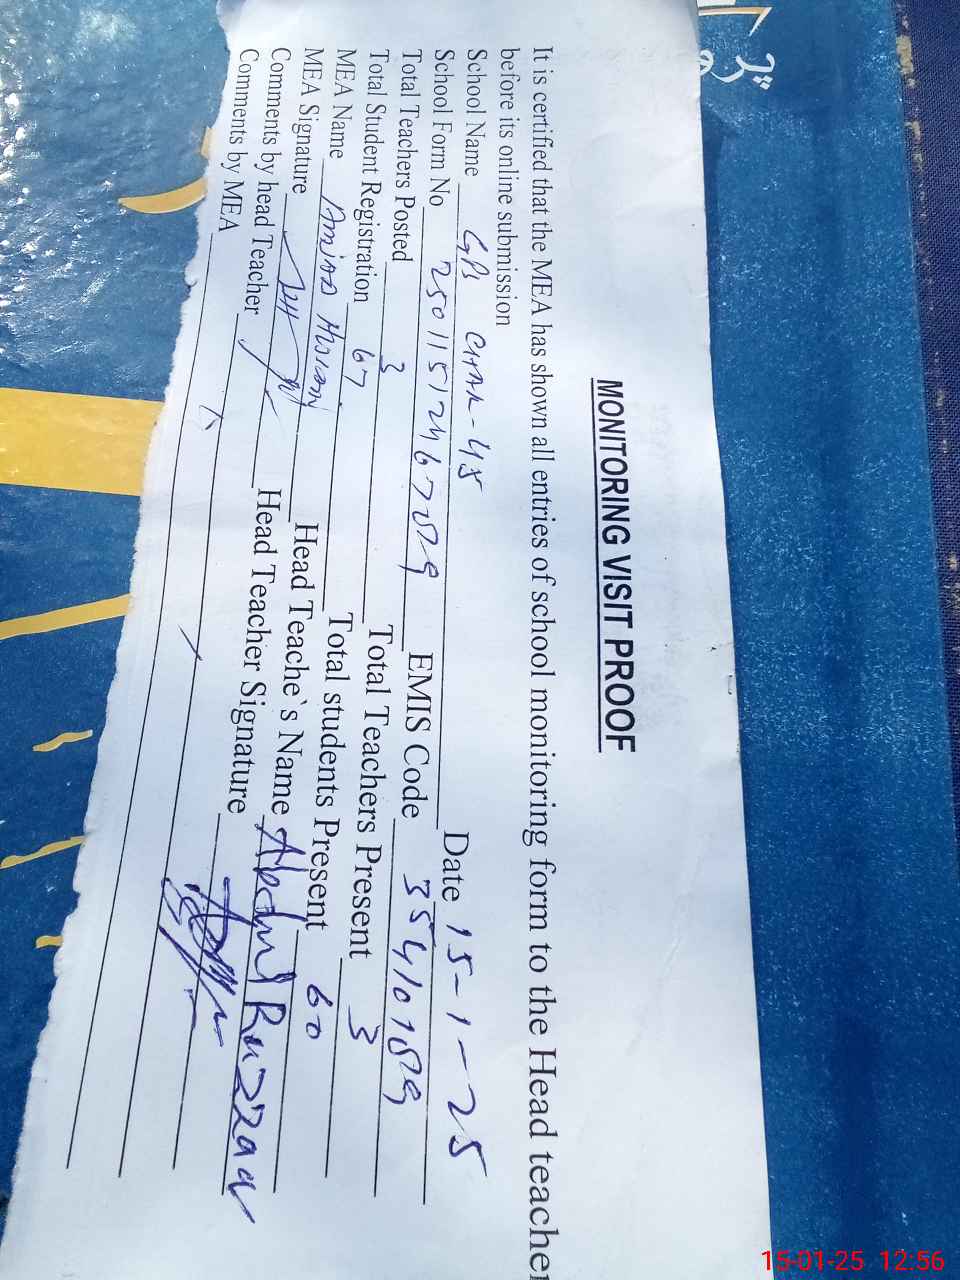 MONITORING VISIT PROOF
It is certified that the MEA has shown all entries of school monitoring form to the Head teacher
before its online submission
School Name GPS CHAK-45 Date 15-1-25
School Form No EMIS Code 35410189
Total Teachers Posted 3 Total Teachers Present 3
Total Student Registration 67 Total students Present 60
MEA Name Head Teache`s Name Abdul Razzaq
MEA Signature Head Teacher Signature
Comments by head Teacher
Comments by MEA
15-01-25 12:56